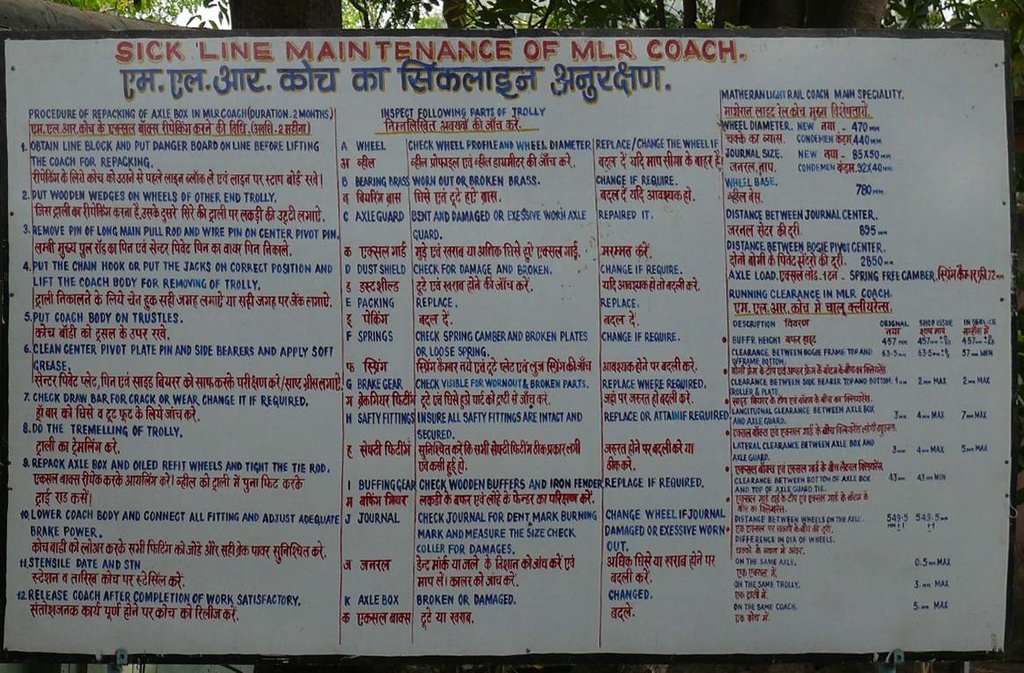 SICK LINE MAINTENANCE OF MLR COACH.
एम.एल.आर. कोच का सिकलाइन अनुरक्षण.
PROCEDURE OF REPACKING OF AXLE BOX IN MLR COACH (DURATION. 2 MONTHS)
एम.एल.आर.कोच के एक्सल बाक्स रीपेकिंग करने की विधि. (अवधि. 2 महीना)
1. OBTAIN LINE BLOCK AND PUT DANGER BOARD ON LINE BEFORE LIFTING
THE COACH FOR REPACKING.
रीपेकिंग के लिये कोच को उठाने से पहले लाइन ब्लॉक लें एवं लाइन पर स्टाप बोर्ड रखें।
2. PUT WOODEN WEDGES ON WHEELS OF OTHER END TROLLY.
जिस ट्राली का रीपेकिंग करना है, उसके दुसरे सिरे की ट्राली पर लकड़ी की उट्टी लगाऐ.
3. REMOVE PIN OF LONG MAIN PULL ROD AND WIRE PIN ON CENTER PIVOT PIN.
लम्बी मुख्य पुल रॉड का पिन एवं सेन्टर पिवेट पिन का वायर पिन निकाले.
4. PUT THE CHAIN HOOK OR PUT THE JACKS ON CORRECT POSITION AND
LIFT THE COACH BODY FOR REMOVING OF TROLLY.
ट्राली निकालने के लिये चेन हुक सही जगह लगाऐ या सही जगह पर जेंक लगाऐ.
5. PUT COACH BODY ON TRUSTLES.
कोच बॉडी को ट्रसल के उपर रखे.
6. CLEAN CENTER PIVOT PLATE PIN AND SIDE BEARERS AND APPLY SOFT
GREASE.
सेन्टर पिवेट प्लेट, पिन एवं साइड बियरर को साफ करके परीक्षण करें/साफ्ट ग्रीस लगाऐ.
7. CHECK DRAW BAR FOR CRACK OR WEAR CHANGE IT IF REQUIRED.
ड्रॉ बार को घिसे व टूट फूट के लिये जॉच करें.
8. DO THE TREMELLING OF TROLLY.
ट्राली का ट्रेमलिंग करें.
9. REPACK AXLE BOX AND OILED REFIT WHEELS AND TIGHT THE TIE ROD.
एक्सल बाक्स रीपेक करके आयलिंग करें। व्हील को ट्राली में पुनः फिट करके
टाई राड कसें।
10. LOWER COACH BODY AND CONNECT ALL FITTING AND ADJUST ADEQUATE
BRAKE POWER.
कोच बाडी को लोअर करके सभी फिटिंग को जोडे और सही ब्रेक पावर सुनिश्चित करें.
11. STENSILE DATE AND STN
स्टेशन व तारिख कोच पर स्टेंसिल करें.
12. RELEASE COACH AFTER COMPLETION OF WORK SATISFACTORY.
संतोशजनक कार्य पूर्ण होने पर कोच को रिलीज करें.
INSPECT FOLLOWING PARTS OF TROLLY
निम्नलिखित अवयवों की जॉच करें.
A WHEEL CHECK WHEEL PROFILE AND WHEEL DIAMETER REPLACE/CHANGE THE WHEEL IF
अ व्हील व्हील प्रोफाइल एवं व्हील डायमीटर की जॉच करें. बदल दें यदि माप सीमा के बाहर हैं
B BEARING BRASS WORN OUT OR BROKEN BRASS. CHANGE IF REQUIRE.
ब बियरिंग ब्रास घिसे एवं टूटे हुऐ ब्रास. बदल दें यदि आवश्यक हो.
C AXLEGUARD BENT AND DAMAGED OR EXESSIVE WORN AXLE REPAIRED IT.
GUARD.
क एक्सल गार्ड मुड़े एवं खराब या अधिक घिसे हुए एक्सल गार्ड. मरम्मत करें.
D DUST SHIELD CHECK FOR DAMAGE AND BROKEN. CHANGE IF REQUIRE.
ड डस्ट शील्ड टूटे एवं खराब होने की जॉच करें. यदि आवश्यक हो तो बदली करे.
E PACKING REPLACE. REPLACE.
इ पेकिंग बदल दें. बदल दें.
F SPRINGS CHECK SPRING CAMBER AND BROKEN PLATES CHANGE IF REQUIRE.
OR LOOSE SPRING.
फ स्प्रिंग स्प्रिंग केम्बर नये एवं टूटे प्लेट एवं लुज स्प्रिंग की जॉच आवश्यक होने पर बदली करे.
G BRAKE GEAR CHECK VISIBLE FOR WORNOUT & BROKEN PARTS. REPLACE WHERE REQUIRED.
ग ब्रेकगियर फिटींग टूटे एवं घिसे हुये पार्ट को दृष्टी से जॉच करें. जहां पर जरुरत हो बदली करें.
H SAFTY FITTINGS INSURE ALL SAFTY FITTINGS ARE INTACT AND REPLACE OR ATTAIN IF REQUIRED
SECURED.
ह सेफ्टी फिटींग सुनिश्चित करें कि सभी सेफ्टी फिटींग ठीक प्रकार लगी जरुरत होने पर बदली करे या
एवं कसी हुई हो. ठीक करे.
I BUFFING GEAR CHECK WOODEN BUFFERS AND IRON FENDER REPLACE IF REQUIRED.
म बफिंग गियर लकड़ी के बफर एवं लोहे के फेन्डर का परिक्षण करें.
J JOURNAL CHECK JOURNAL FOR DENT MARK BURNING CHANGE WHEEL IF JOURNAL
MARK AND MEASURE THE SIZE CHECK DAMAGED OR EXESSIVE WORN
COLLER FOR DAMAGES. OUT.
ज जनरल डेन्ट मॉर्क या जले के निशान को जांच करें एवं अधिक घिसे या खराब होने पर
माप लें। कालर को जॉच करें. बदली करें.
K AXLE BOX BROKEN OR DAMAGED. CHANGED.
क एक्सल बाक्स टूटे या खराब. बदले.
MATHERAN LIGHT RAIL COACH MAIN SPECIALITY.
माथेरान लाइट रेल कोच मुख्य विशेषतायें.
WHEEL DIAMETER. NEW नया - 470 MM
चक्के का व्यास. CONDEMEN कंडम 440 MM
JOURNAL SIZE. NEW नया - 85X50 MM
जनरल माप. CONDEMEN कंडम. 92X40 MM
WHEEL BASE.
व्हील बेस. 780 MM.
DISTANCE BETWEEN JOURNAL CENTER.
जरनल सेंटर की दूरी. 895 MM.
DISTANCE BETWEEN BOGIE PIVOT CENTER.
दोनो बोगी के पिवेट सेंटरो की दूरी. 2850 MM.
AXLE LOAD. एक्सल लोड. 1 टन - SPRING FREE CAMBER. स्प्रिंग कैम्बर फ्री. 72 MM
RUNNING CLEARANCE IN MLR COACH.
एम.एल.आर.कोच में चालू क्लीयरेंस.
DESCRIPTION विवरण ORIGINAL SHOP ISSUE IN SERVICE
BUFFR. HEIGHT बफर हाइट 457 MM
CLEARANCE BETWEEN BOGIE FRAME TOP AND 63.5 MM 57 MIN
U/FRAME BOTTOM.
CLEARANCE BETWEEN SIDE BEARER TOP AND BOTTOM. 1 MM 2 MM MAX 2 MM MAX
ROLLER & PLATE.
LANGITUDINAL CLEARANCE BETWEEN AXLE BOX 3 MM 4 MM MAX 7 MM MAX
AND AXLE GUARD.
LATERAL CLEARANCE BETWEEN AXLE BOX AND 3 MM 4 MM MAX 5 MM MAX
AXLE GUARD.
CLEARANCE BETWEEN BOTTOM OF AXLE BOX 43 MM 43 MM MIN
AND TOP OF AXLE GUARD TIE.
DISTANCE BETWEEN WHEELS ON THE AXLE. 549.5 549.5 MM
DIFFERENCE IN DIA OF WHEELS.
ON THE SAME AXLE. 0.5 MM MAX
एक एक्सल में.
ON THE SAME TROLLY. 3. MM MAX
एक ट्राली में.
ON THE SAME COACH. 5 MM MAX
एक कोच में.